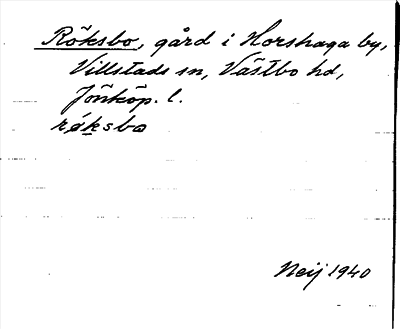 Röksbo, gård i Horshaga by,
Villstads sn, Västbo hd,
Jönköp. l.
røksbo
Neij 1940